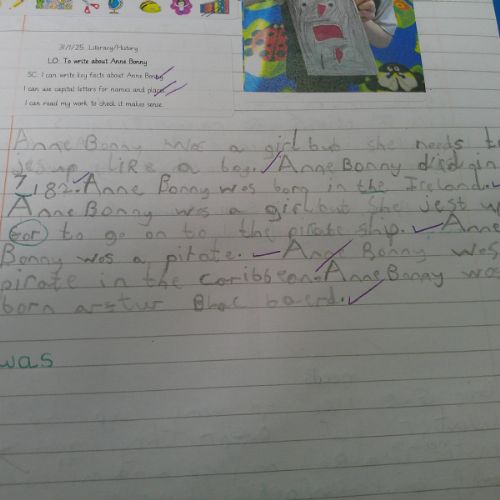 31/1/25 Literacy/History
LO: To write about Anne Bonny
SC: I can write key facts about Anne Bonny
I can use capital letters for names and places.
I can read my work to check it makes sense.
Anne Bonny was a girl but she needs to
jes up like a boy. Anne Bonny
182. Anne Bonny was born in the Ireland.
Anne Bonny was a girl but she jest
to go on to the pirate ship. Anne
Bonny was a pirate. Ane Bonny was
pirate in the caribbean. Anne Bonny was
born arstur Blac baerd.
was